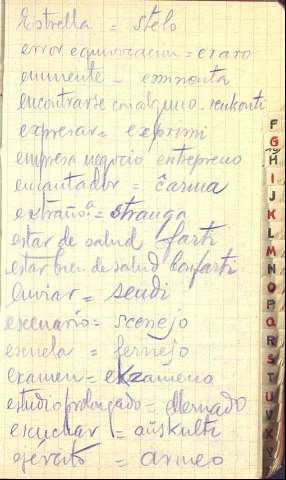 Estrella = stelo
error equivocacion = eraro
eminente - eminenta
encontrarse con alguno - renkonti
expresar = exprimi
empresa negocio entrepreno
encantador = ĉarma
extraño.a = stranga
estar de salud farti
estar bien de salud bonfarti
enviar = sendi
escenario = scenejo
escuela = lernejo
examen = ekzameno
estudio prolongado =
escuchar = aŭskulti
ejército = armeo
F
G
H
I
J
K
L
M
N
O
P
Q
R
S
T
U
V
X
Y